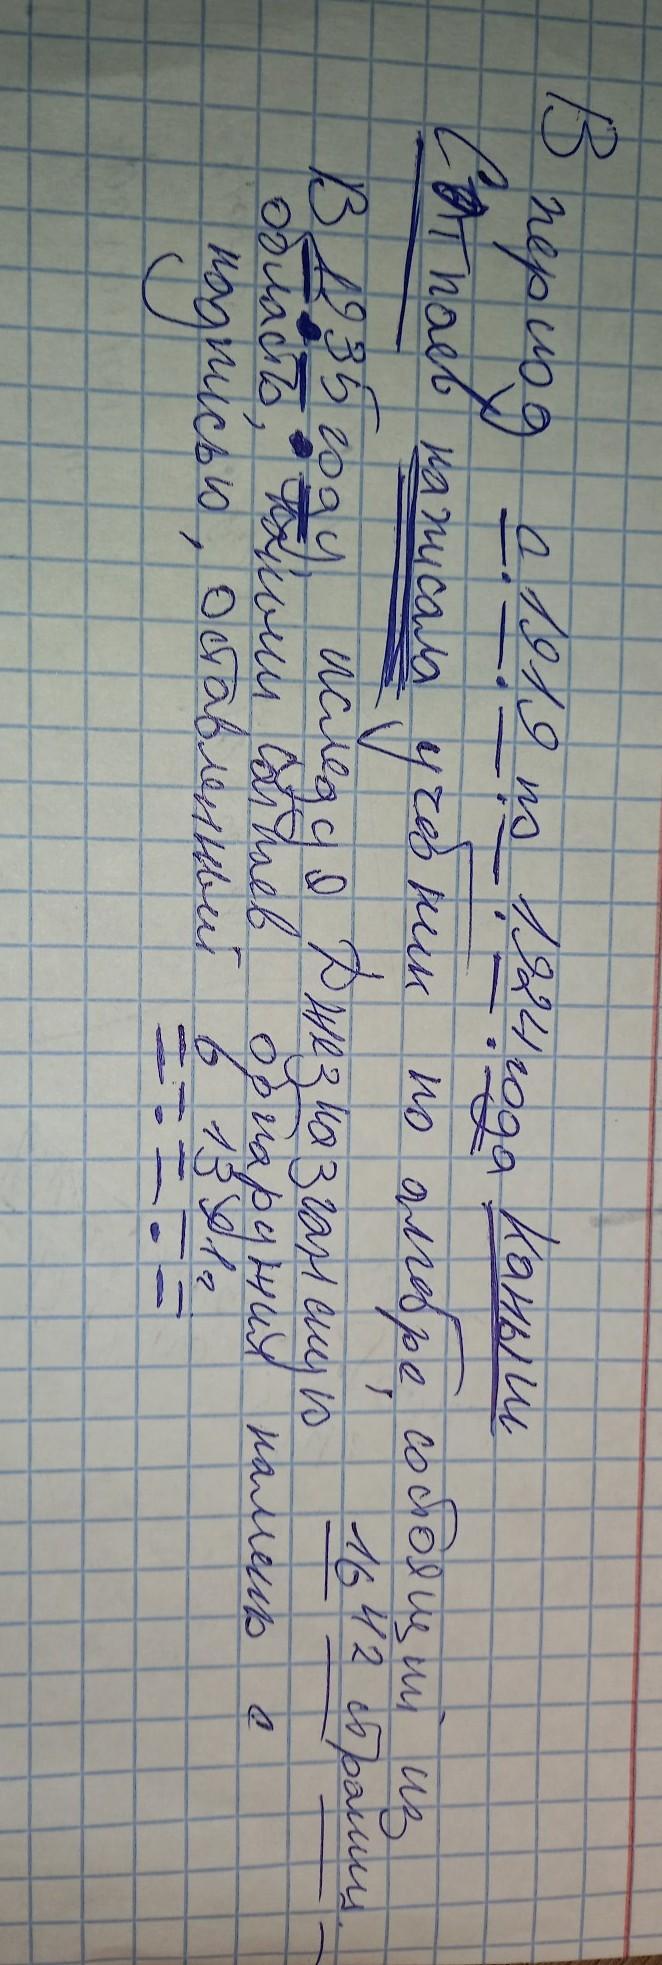 В период с 1919 по 1924 года Каныш
Сатпаев написал учебник по алгебре, состоящий из
1642 страниц.
В 1935 году исследуя Джезказганскую
область, Каныш Сатпаев обнаружил камень с
надписью, оставленный в 1391г.